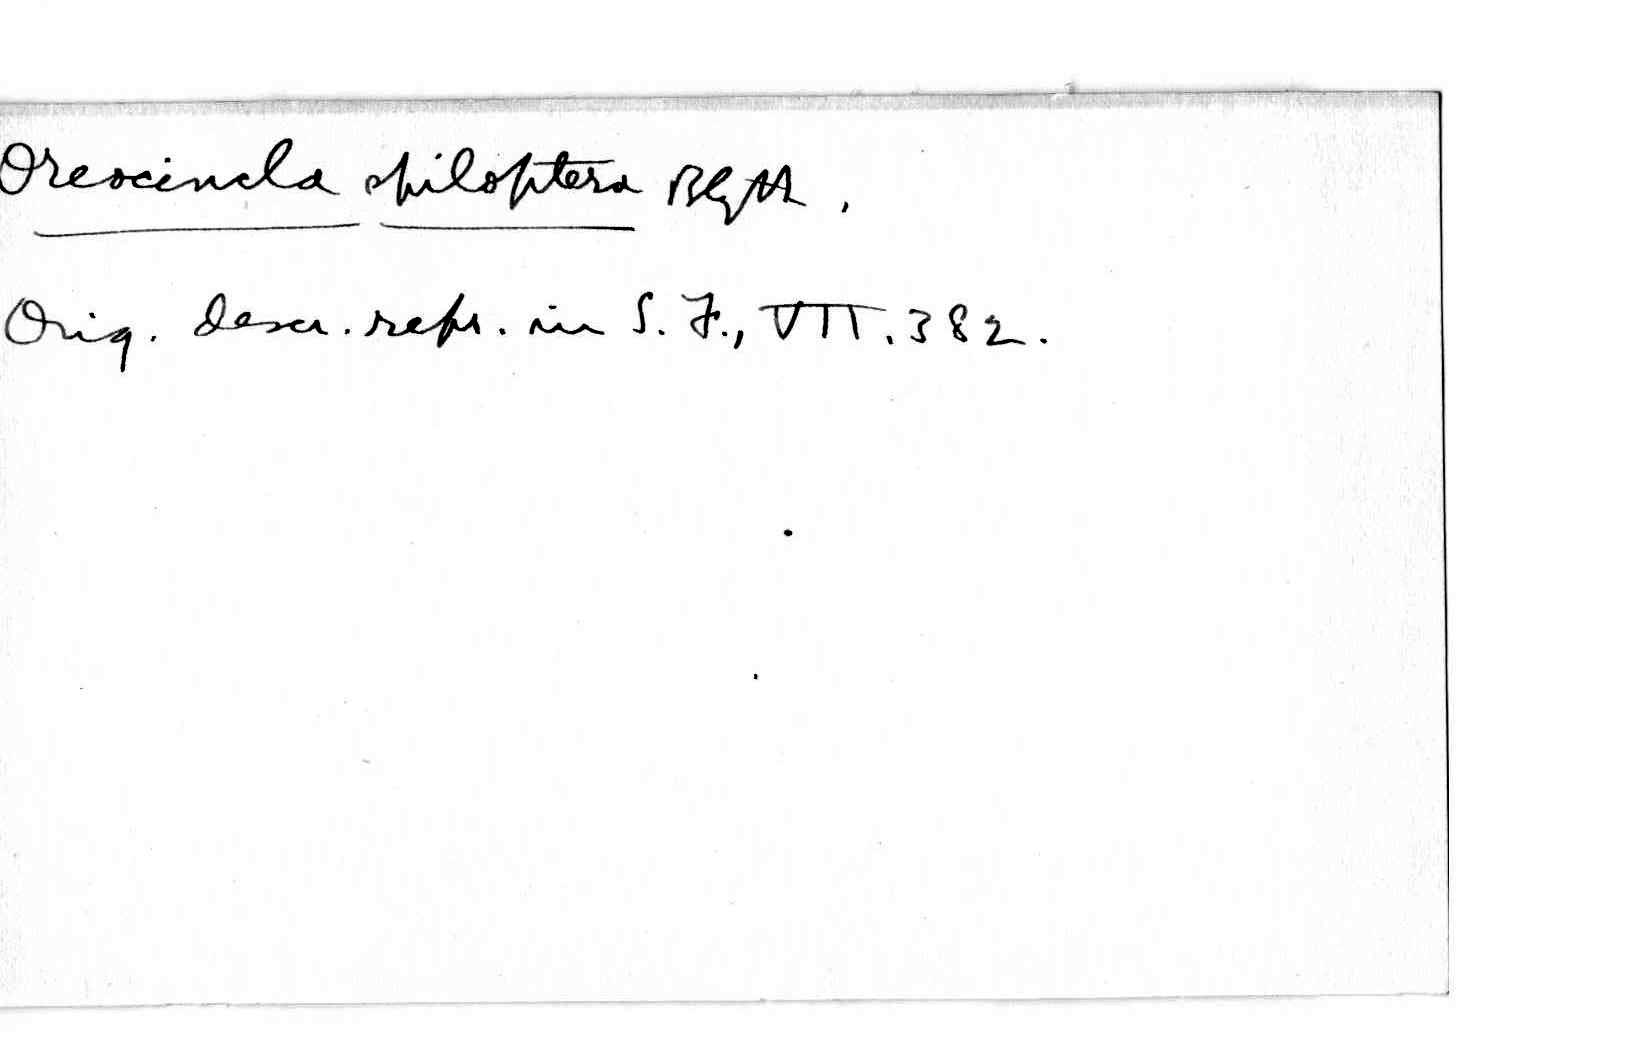 Oreocincla spiloptera Blyth.
Orig. descr. repr. in S. F., VII. 382.